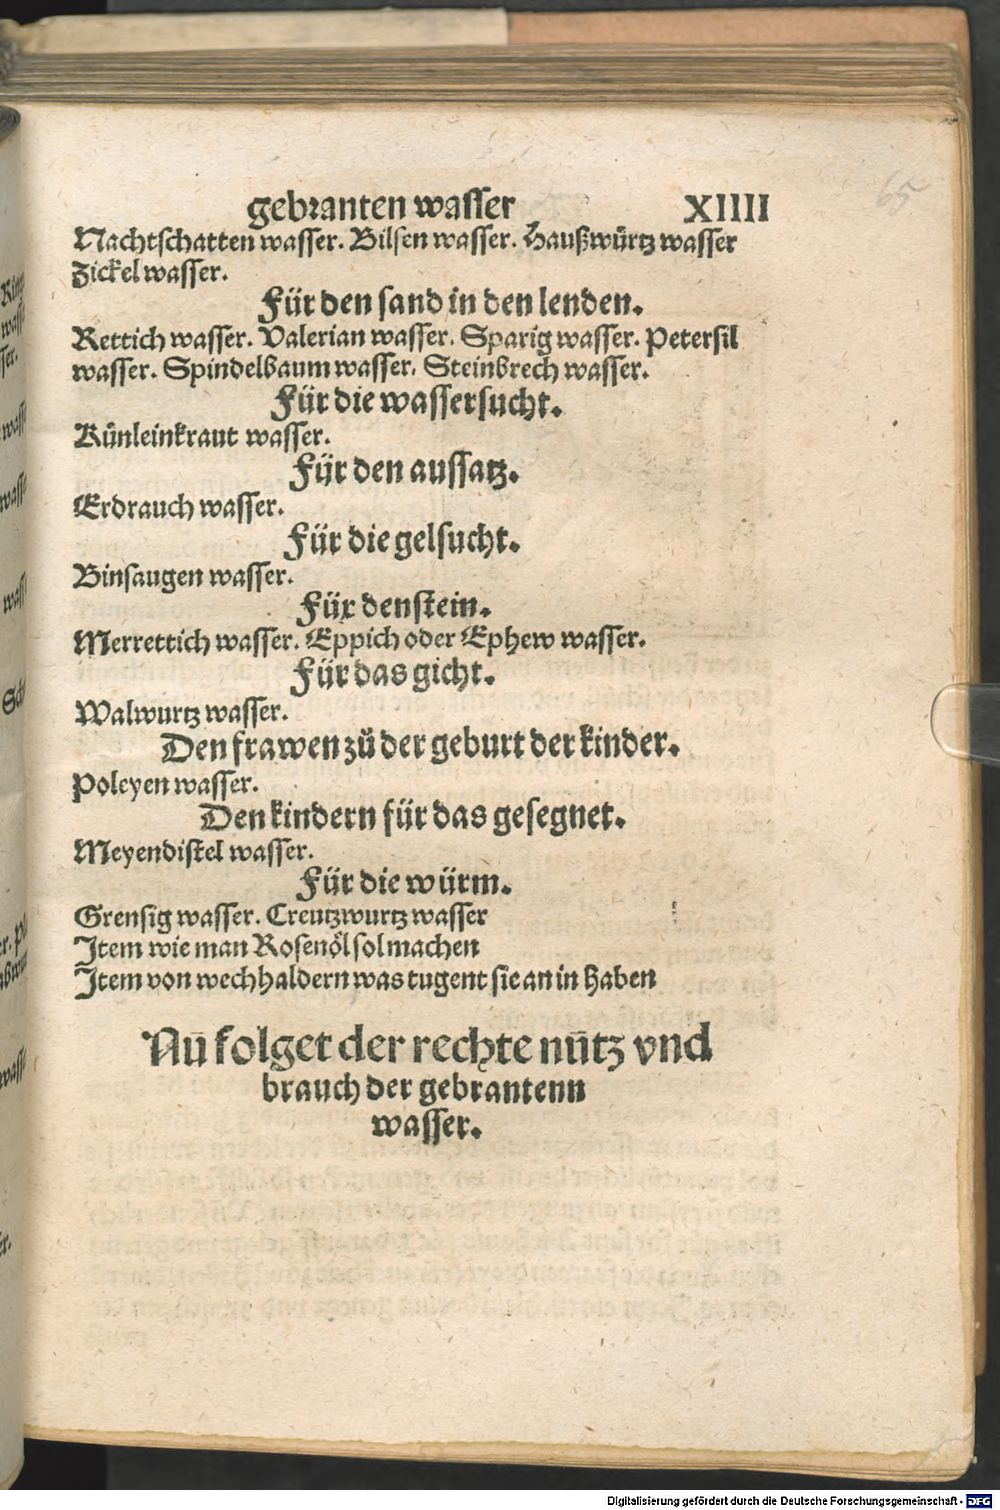 gebranten wasser XIIII
65
Nachtschatten wasser. Bilsen wasser. Haußwürtz wasser
Zickel wasser.
Für den sand in den lenden.
Rettich wasser. Valerian wasser. Sparig wasser. Petersil
wasser. Spindelbaum wasser. Steinbrech wasser.
Für die wassersucht.
Künleinkraut wasser.
Für den aussatz.
Erdrauch wasser.
Für die gelsucht.
Binsaugen wasser.
Für den stein.
Merrettich wasser. Eppich oder Ephew wasser.
Für das gicht.
Walwurtz wasser.
Den frawen zů der geburt der kinder.
Poleyen wasser.
Den kindern für das gesegnet.
Meyendistel wasser.
Für die würm.
Grensig wasser. Creutzwurtz wasser
Item wie man Rosenöl sol machen
Item von wechhaldern was tugent sie an in haben
Nū folget der rechte nütz vnd
brauch der gebrantenn
wasser.
Digitalisierung gefördert durch die Deutsche Forschungsgemeinschaft - DFG